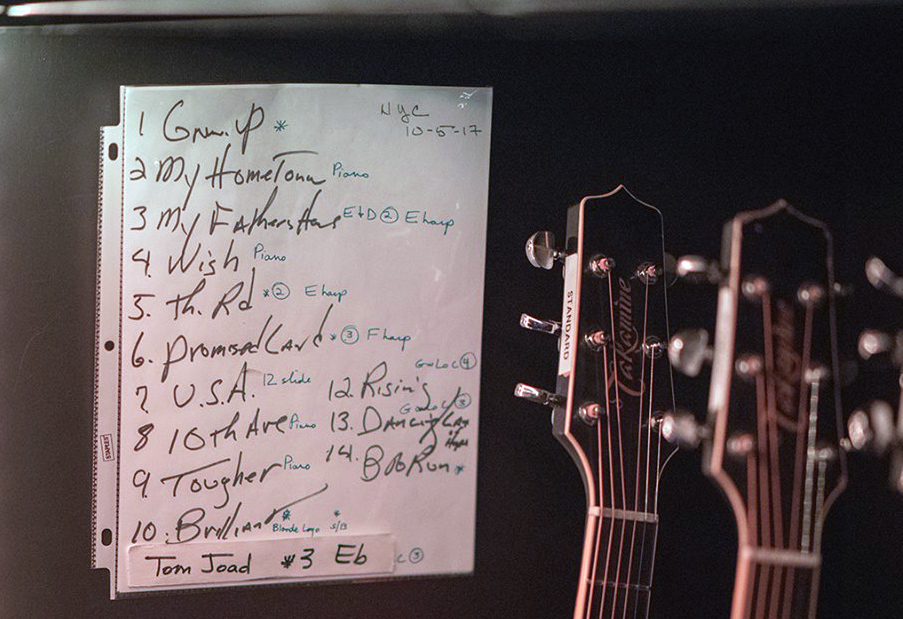 NYC
10-5-17
1 Grow. up *
2 My HomeTown Piano
3 My Fathers Hous EbD ② E harp
4. Wish Piano
5. th. Rd *② E harp
6. Promised Land *③ F harp
7 U.S.A. 12 slide
8 10th Ave Piano
9. Tougher Piano
10. Brilliant * Blonde Logo * S/B
Tom Joad #3 Eb C③
12. Rising C④
13. Dancing ③
14. BoRun *
STAPLES
STANDARD
Takamine
Takamine